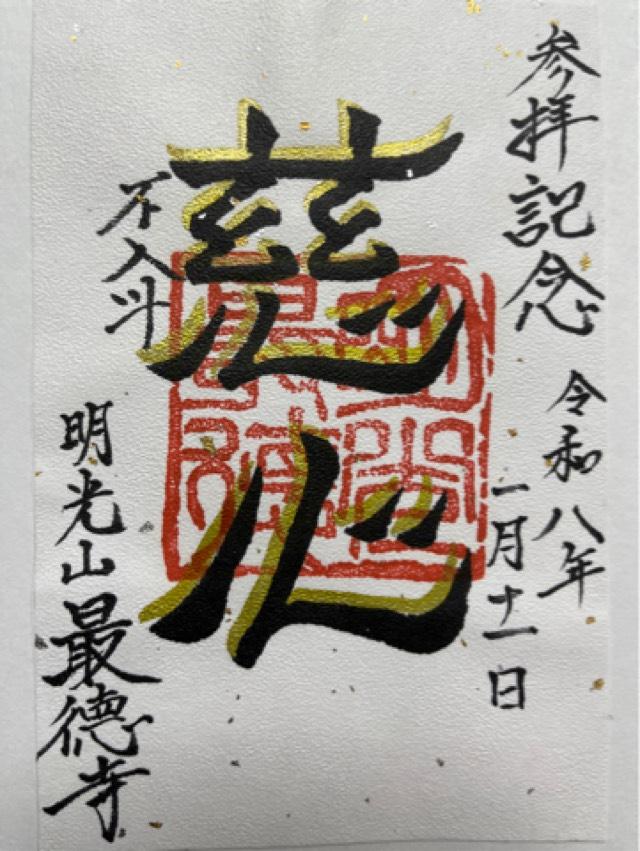 参拝記念
令和八年
一月十一日
慈心
不入斗
明光山 最徳寺